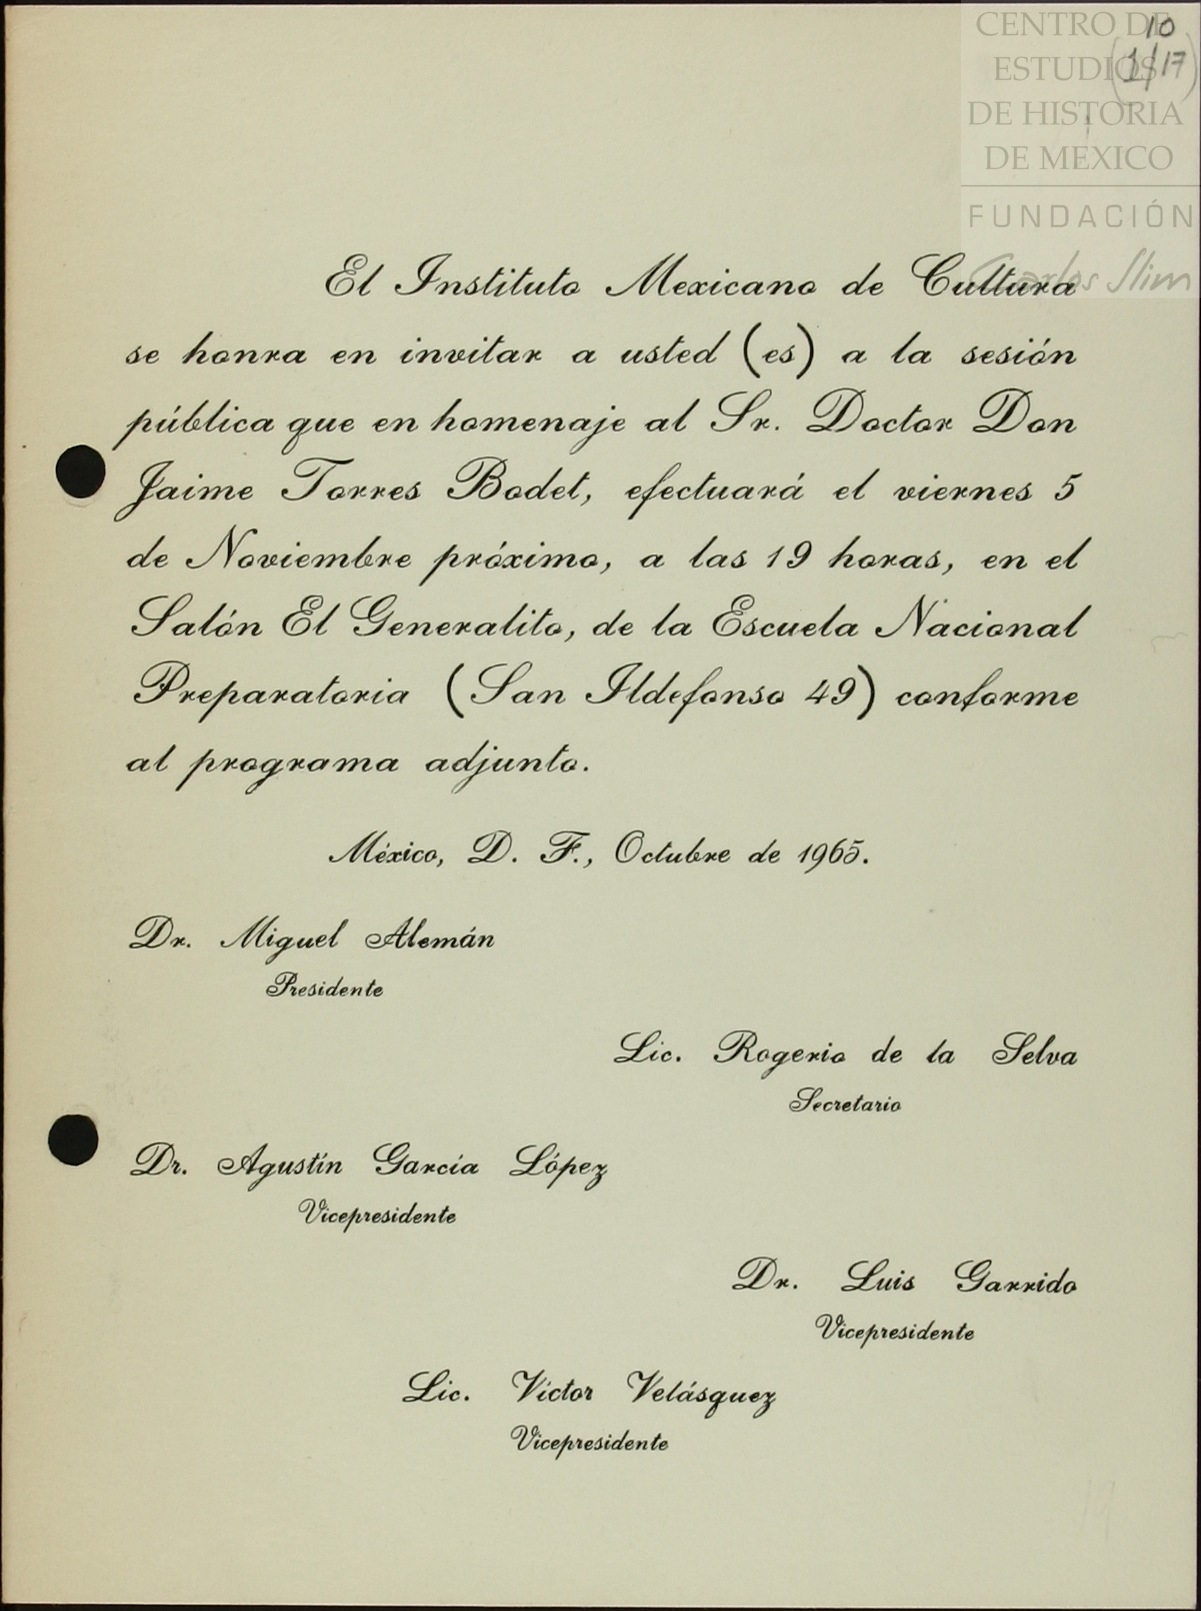 CENTRO DE
ESTUDIOS
DE HISTORIA
DE MEXICO
FUNDACIÓN
Carlos Slim
10
1/17
El Instituto Mexicano de Cultura
se honra en invitar a usted (es) a la sesión
pública que en homenaje al Sr. Doctor Don
Jaime Torres Bodet, efectuará el viernes 5
de Noviembre próximo, a las 19 horas, en el
Salón El Generalito, de la Escuela Nacional
Preparatoria (San Ildefonso 49) conforme
al programa adjunto.
México, D. F., Octubre de 1965.
Dr. Miguel Alemán
Presidente
Lic. Rogerio de la Selva
Secretario
Dr. Agustín García López
Vicepresidente
Dr. Luis Garrido
Vicepresidente
Lic. Víctor Velásquez
Vicepresidente